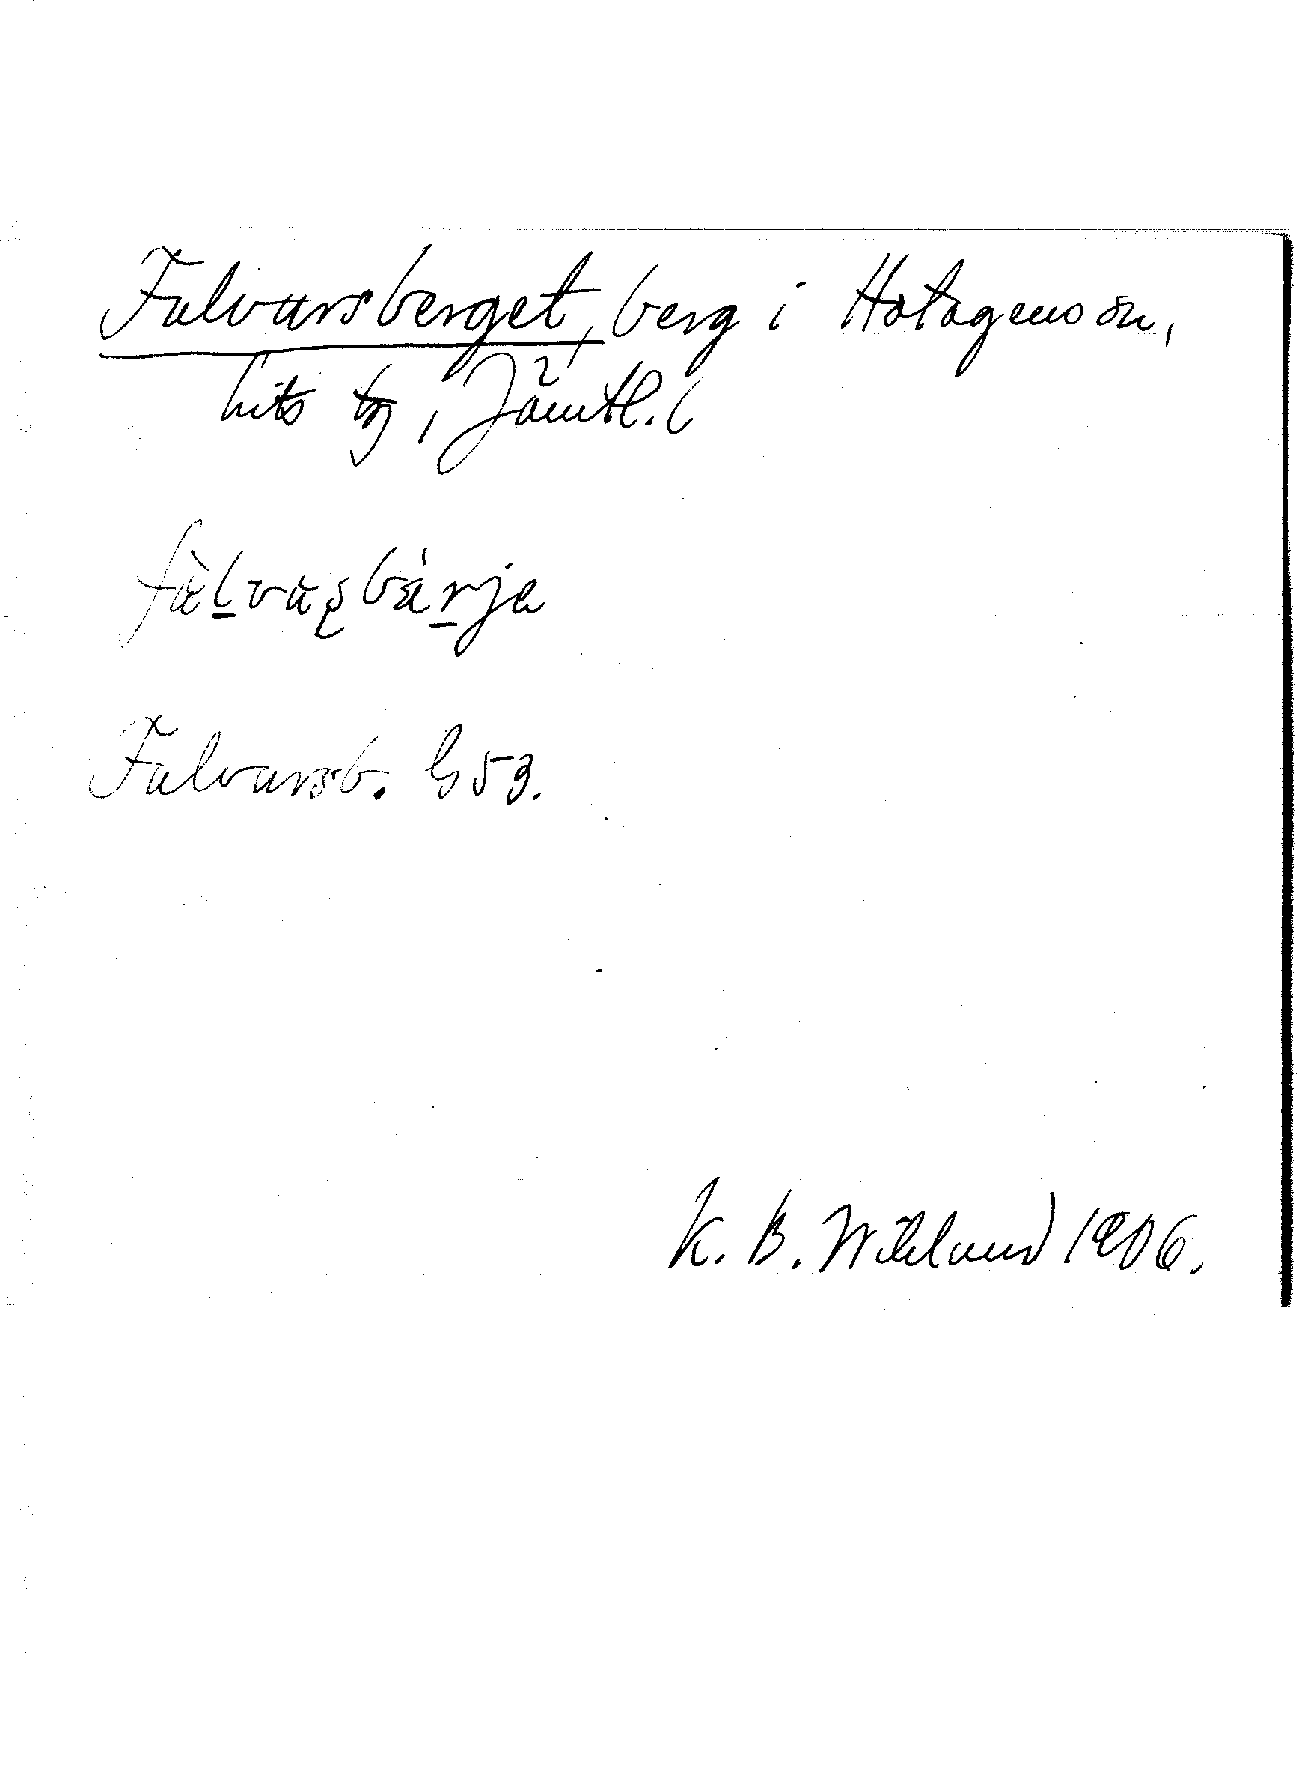 Falvarsberget, berg i Hotagens sn,
Lits tg, Jämtl. l
fàlvaʂbárja
Falvarsb. G53.
K. B. Wiklund 1906.